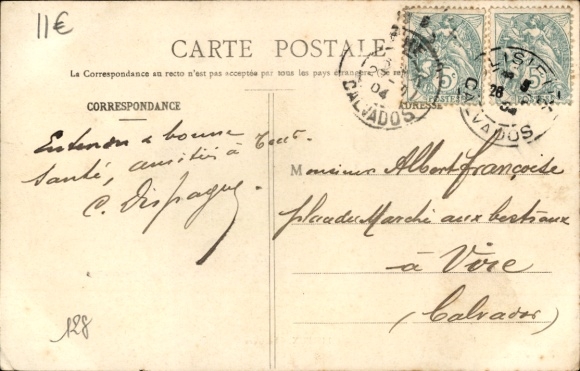 11€
CARTE POSTALE
La Correspondance au recto n'est pas acceptée par tous les pays étrangers. (Se
CORRESPONDANCE
ADRESSE
CALVADOS
04
26
04
CALVADOS
5c
5c
POSTES
bonne
santé, amitiés à tous.
C. Dispagne
Monsieur Albert Françoise
place du Marché aux bestiaux
à Vire
(Calvados)
128